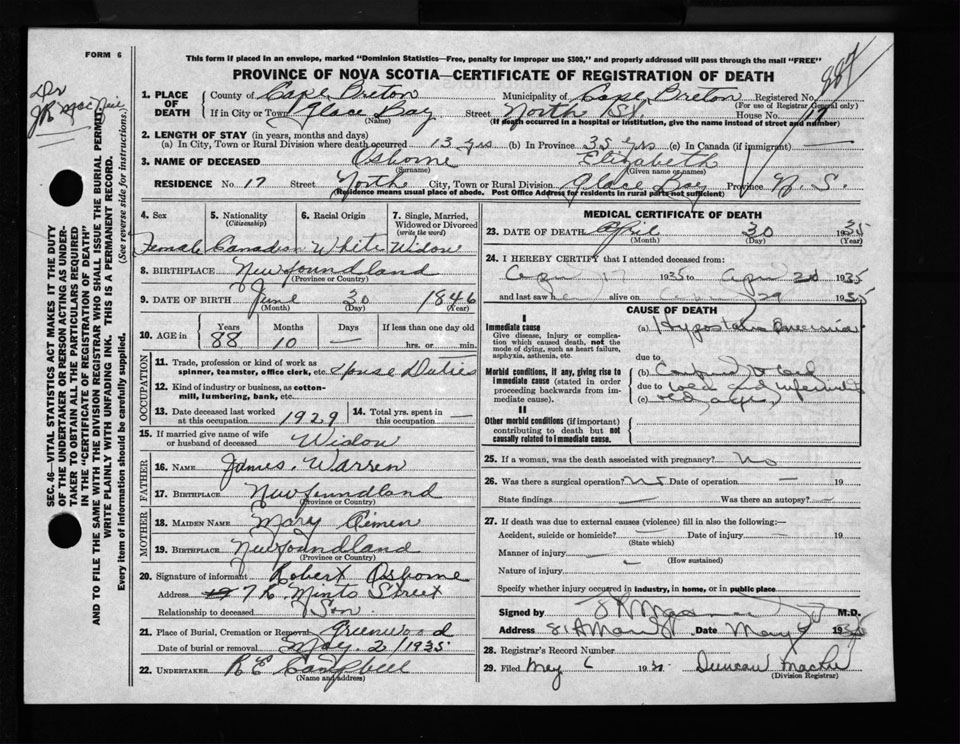 FORM 6
This form if placed in an envelope, marked "Dominion Statistics—Free, penalty for improper use $300," and properly addressed will pass through the mail "FREE"
PROVINCE OF NOVA SCOTIA—CERTIFICATE OF REGISTRATION OF DEATH
887
Dr
SEC. 46—VITAL STATISTICS ACT MAKES IT THE DUTY
OF THE UNDERTAKER OR PERSON ACTING AS UNDER-
TAKER TO OBTAIN ALL THE PARTICULARS REQUIRED
IN THE "CERTIFICATE OF REGISTRATION OF DEATH"
AND TO FILE THE SAME WITH THE DIVISION REGISTRAR WHO SHALL ISSUE THE BURIAL PERMIT
WRITE PLAINLY WITH UNFADING INK. THIS IS A PERMANENT RECORD.
Every item of information should be carefully supplied. (See reverse side for instructions.)
1. PLACE OF DEATH County of Cape Breton Municipality of Cape Breton Registered No.
(For use of Registrar General only)
If in City or Town Glace Bay Street North St. House No. 17
(Name) (If death occurred in a hospital or institution, give the name instead of street and number)
2. LENGTH OF STAY (in years, months and days)
(a) In City, Town or Rural Division where death occurred 13 yrs (b) In Province 35 yrs (c) In Canada (if immigrant) —
3. NAME OF DECEASED Osborne Elizabeth
(Surname) (Given name or names)
RESIDENCE No. 17 Street North City, Town or Rural Division Glace Bay Province N.S.
(Residence means usual place of abode. Post Office Address for residents in rural parts not sufficient)
4. Sex 5. Nationality (Citizenship) 6. Racial Origin 7. Single, Married, Widowed or Divorced (write the word)
Female Canadian White Widow
8. BIRTHPLACE Newfoundland
(Province or Country)
9. DATE OF BIRTH June 30 1846
(Month) (Day) (Year)
10. AGE in Years Months Days If less than one day old
88 10 — hrs. or min.
OCCUPATION
11. Trade, profession or kind of work as spinner, teamster, office clerk, etc. House Duties
12. Kind of industry or business, as cotton-mill, lumbering, bank, etc.
13. Date deceased last worked at this occupation 1929 14. Total yrs. spent in this occupation —
15. If married give name of wife or husband of deceased Widow
FATHER
16. NAME James Warren
17. BIRTHPLACE Newfoundland
(Province or Country)
MOTHER
18. MAIDEN NAME Mary
19. BIRTHPLACE Newfoundland
(Province or Country)
20. Signature of informant Robert Osborne
Address Minto Street
Relationship to deceased Son
21. Place of Burial, Cremation or Removal Greenwood
Date of burial or removal May 2/1935
22. UNDERTAKER Campbell
(Name and address)
MEDICAL CERTIFICATE OF DEATH
23. DATE OF DEATH April 30 1935
(Month) (Day) (Year)
24. I HEREBY CERTIFY that I attended deceased from:
17 1935 to 1935
and last saw h alive on 29 1935
CAUSE OF DEATH
I
Immediate cause
Give disease, injury or complication which caused death, not the mode of dying, such as heart failure, asphyxia, asthenia, etc.
(a)
due to
Morbid conditions, if any, giving rise to immediate cause (stated in order proceeding backwards from immediate cause).
(b)
due to
(c) old age
II
Other morbid conditions (if important) contributing to death but not causally related to immediate cause.
25. If a woman, was the death associated with pregnancy? No
26. Was there a surgical operation No Date of operation — 19
State findings — Was there an autopsy? —
27. If death was due to external causes (violence) fill in also the following:—
Accident, suicide or homicide? Date of injury 19
(State which)
Manner of injury
(How sustained)
Nature of injury
Specify whether injury occurred in industry, in home, or in public place
Signed by M.D.
Address Date May 1935
28. Registrar's Record Number
29. Filed May 6 19 Duncan
(Division Registrar)